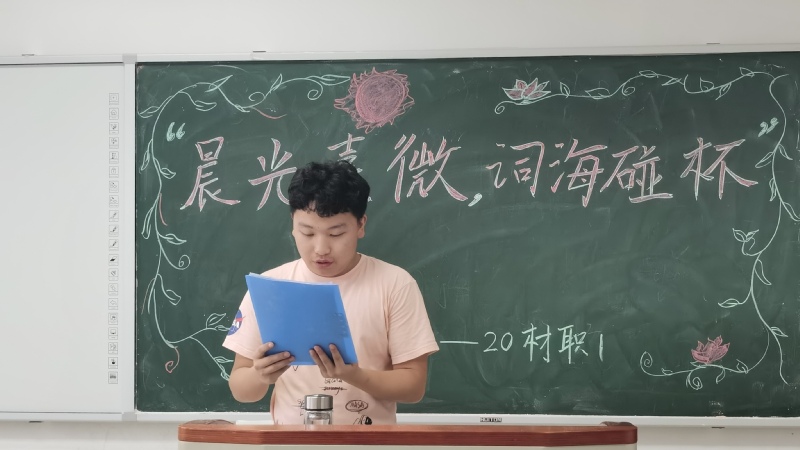 “晨光熹微,词海碰杯”
——20材职1
NASA